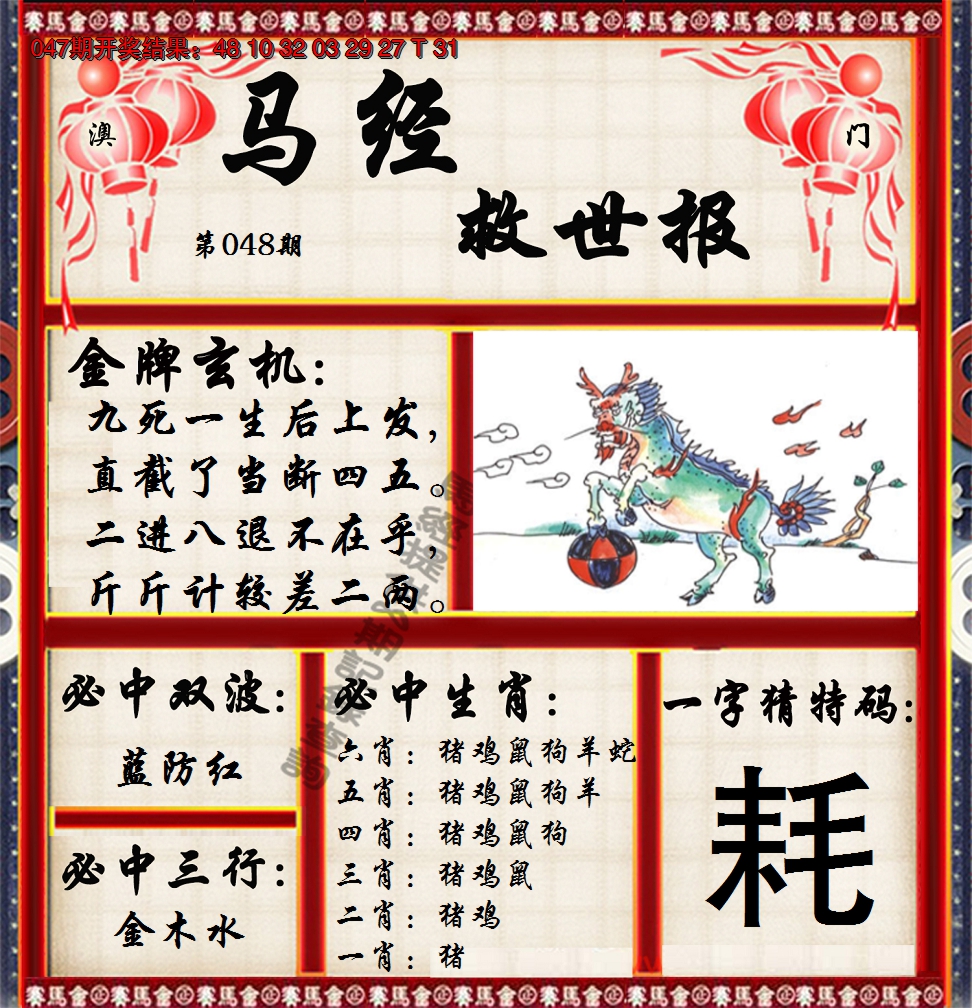 047期开奖结果：48 10 32 03 29 27 T 31
澳
门
马经
救世报
第048期
金牌玄机：
九死一生后上发，
直截了当断四五。
二进八退不在乎，
斤斤计较差二两。
必中双波：
蓝防红
必中三行：
金木水
必中生肖：
六肖：猪鸡鼠狗羊蛇
五肖：猪鸡鼠狗羊
四肖：猪鸡鼠狗
三肖：猪鸡鼠
二肖：猪鸡
一肖：猪
一字猜特码：
耗